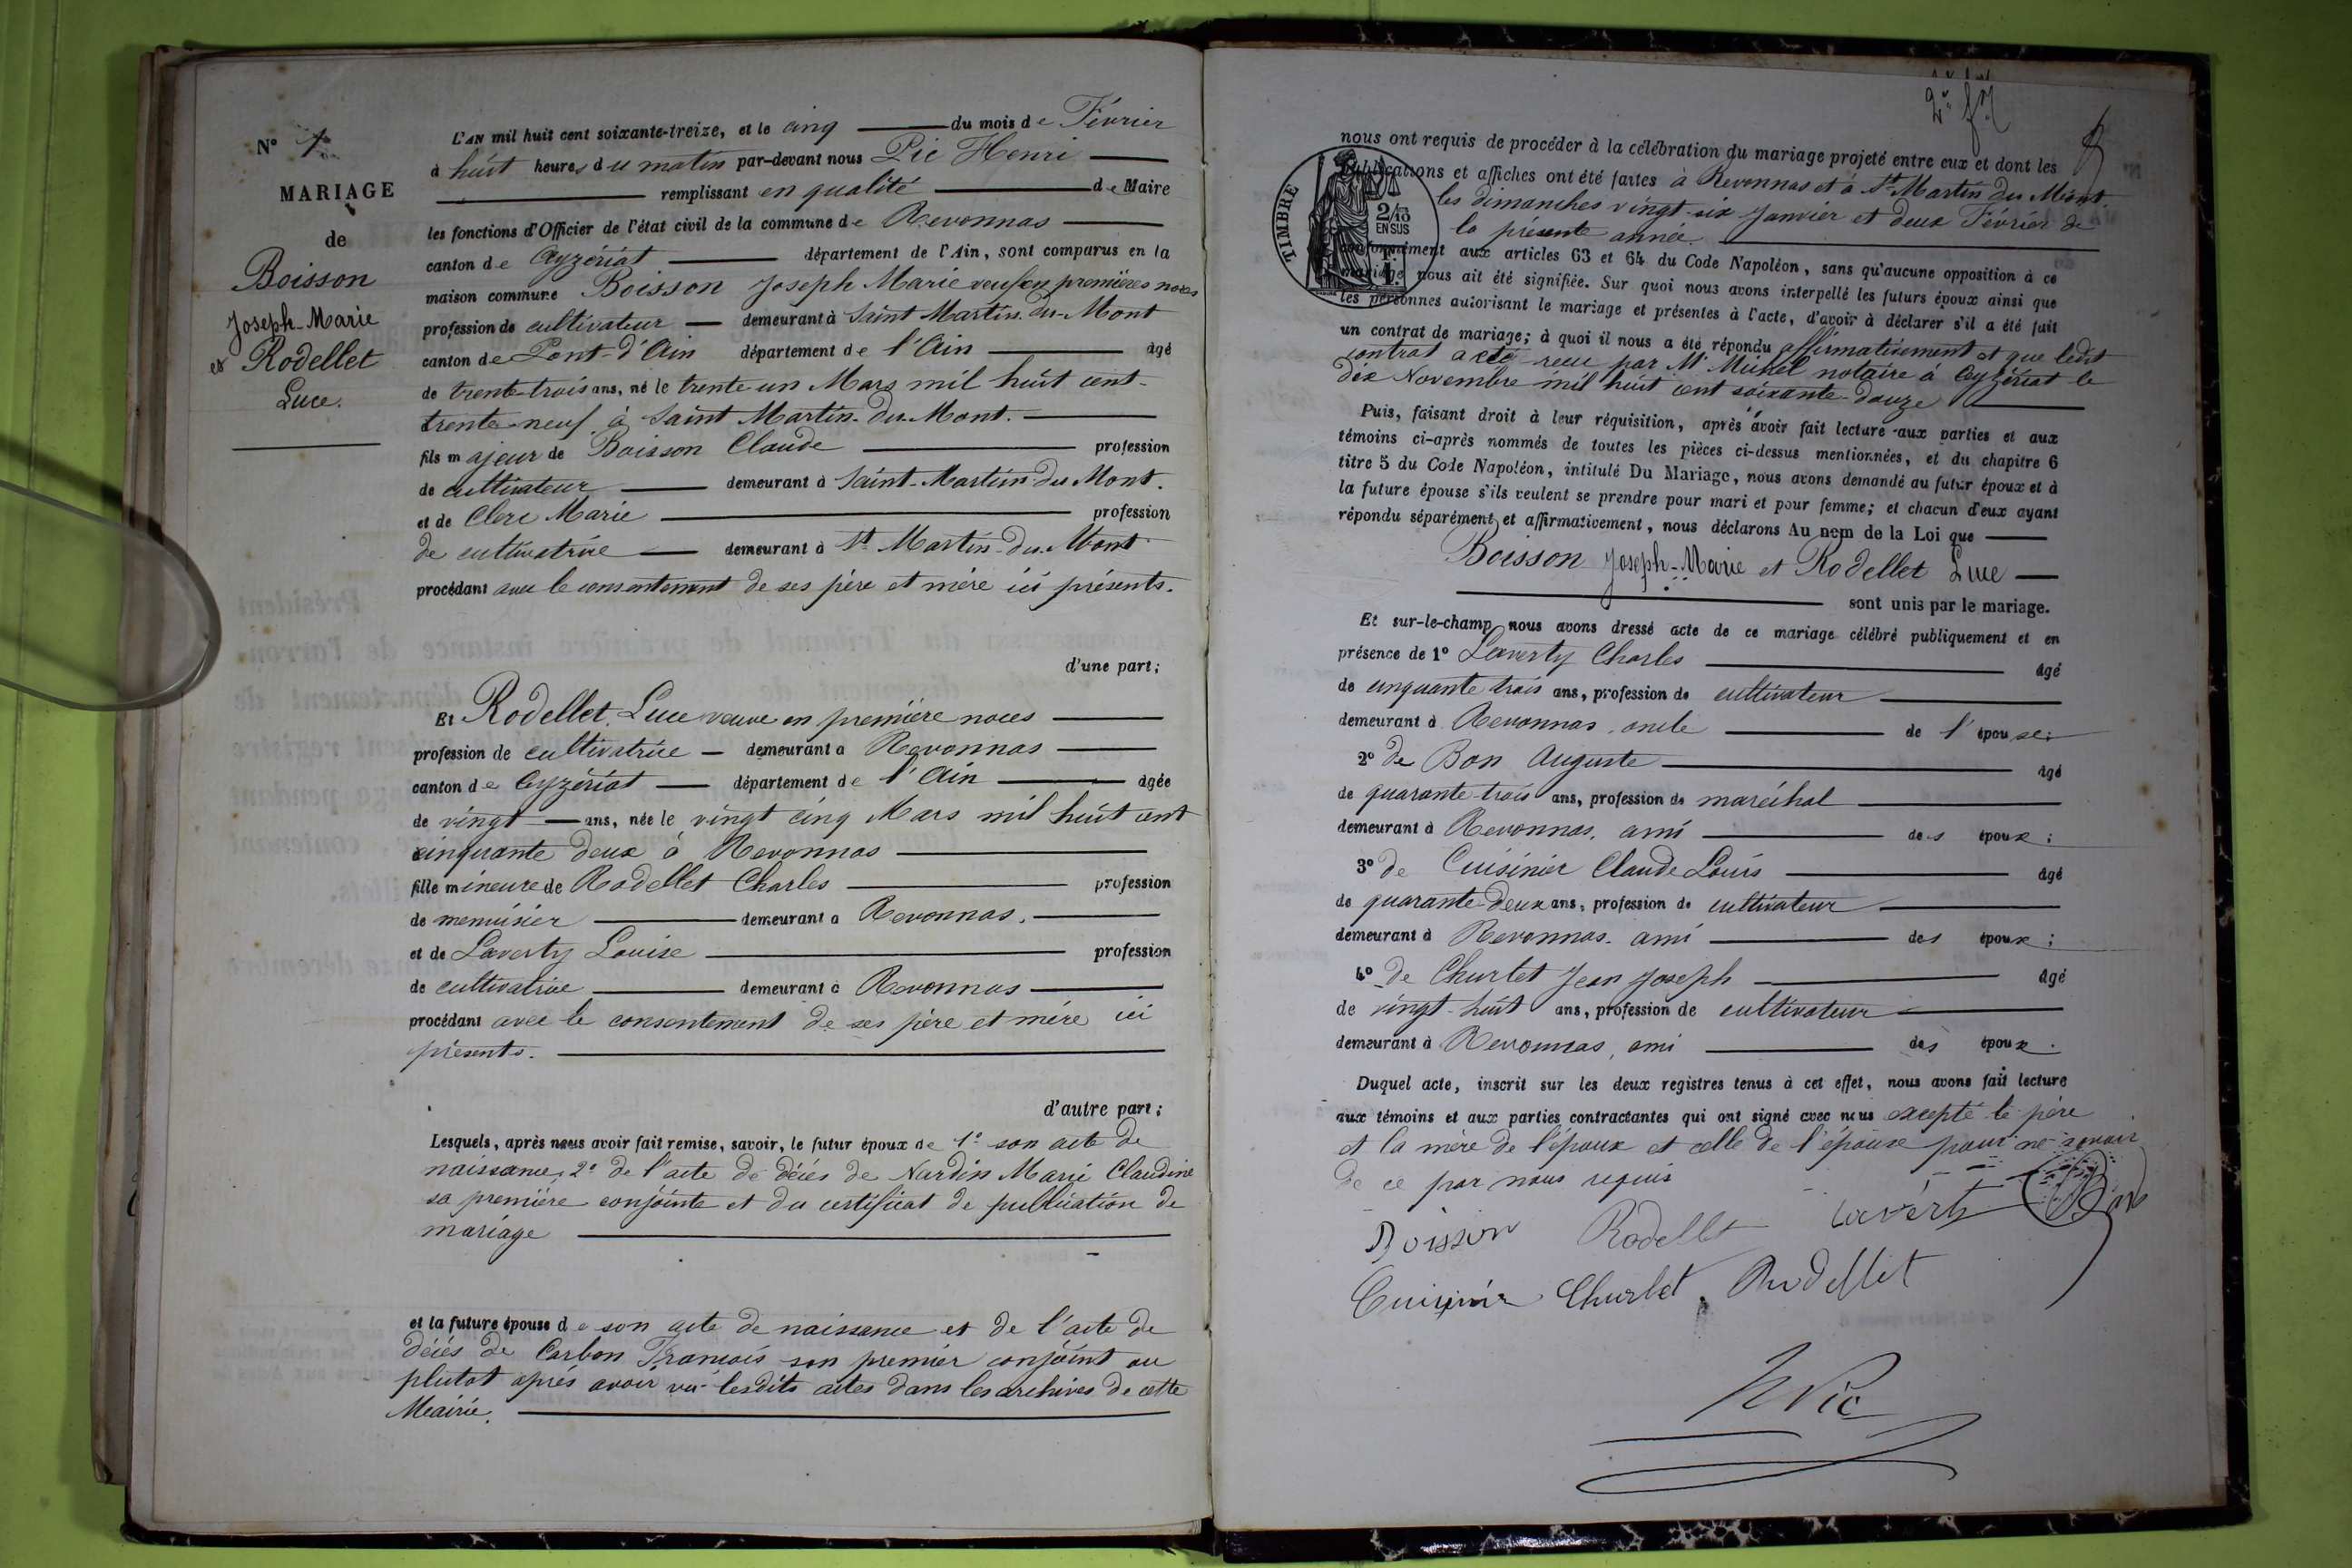 N° 1
MARIAGE
de
Boisson
Joseph-Marie
et Rodellet
Luce.
L'AN mil huit cent soixante-treize, et le cinq du mois de Février
à huit heures du matin par-devant nous Pic Henri
remplissant en qualité de Maire
les fonctions d'Officier de l'état civil de la commune de Revonnas
canton de Ceyzériat département de l'Ain, sont comparus en la
maison commune Boisson Joseph Marie veuf en premières noces
profession de cultivateur demeurant à Saint Martin-du-Mont
canton de Pont-d'Ain département de l'Ain âgé
de trente-trois ans, né le trente-un Mars mil huit cent-
trente-neuf à Saint Martin-du-Mont.
fils majeur de Boisson Claude profession
de cultivateur demeurant à Saint-Martin-du Mont.
et de Clerc Marie profession
de cultivatrice demeurant à St Martin-du-Mont
procédant avec le consentement de ses père et mère ici présents.
d'une part;
Et Rodellet, Luce veuve en première noces
profession de cultivatrice demeurant à Revonnas
canton de Ceyzériat département de l'Ain âgée
de vingt ans, née le vingt cinq Mars mil huit cent
cinquante deux à Revonnas
fille mineure de Rodellet Charles profession
de menuisier demeurant à Revonnas.
et de Laverty Louise profession
de cultivatrice demeurant à Revonnas
procédant avec le consentement de ses père et mère ici
présents.
d'autre part;
Lesquels, après nous avoir fait remise, savoir, le futur époux de 1° son acte de
naissance, 2° de l'acte de décès de Nardin Marie Claudine
sa première conjointe et du certificat de publication de
mariage
et la future épouse de son acte de naissance et de l'acte de
décès de Carbon François son premier conjoint ou
plutot après avoir vu lesdits actes dans les archives de cette
Mairie.
nous ont requis de procéder à la célébration du mariage projeté entre eux et dont les
publications et affiches ont été faites à Revonnas et à St Martin du Mont.
les dimanches vingt-six Janvier et deux Février de
la présente année.
TIMBRE
2/10
EN SUS
conformément aux articles 63 et 64 du Code Napoléon, sans qu'aucune opposition à ce
mariage nous ait été signifiée. Sur quoi nous avons interpellé les futurs époux ainsi que
les personnes autorisant le mariage et présentes à l'acte, d'avoir à déclarer s'il a été fait
un contrat de mariage; à quoi il nous a été répondu affirmativement et que ledit
contrat a été recu par Me notaire à Ceyzériat le
dix Novembre mil huit cent soixante-douze
Puis, faisant droit à leur réquisition, après avoir fait lecture aux parties et aux
témoins ci-après nommés de toutes les pièces ci-dessus mentionnées, et du chapitre 6
titre 5 du Code Napoléon, intitulé Du Mariage, nous avons demandé au futur époux et à
la future épouse s'ils veulent se prendre pour mari et pour femme; et chacun d'eux ayant
répondu séparément et affirmativement, nous déclarons Au nom de la Loi que
Boisson Joseph-Marie et Rodellet Luce
sont unis par le mariage.
Et sur-le-champ nous avons dressé acte de ce mariage célébré publiquement et en
présence de 1° Laverty Charles âgé
de cinquante trois ans, profession de cultivateur
demeurant à Revonnas, oncle de l'épouse;
2° de Bon Auguste âgé
de quarante-trois ans, profession de maréchal
demeurant à Revonnas, ami des époux;
3° de Cuisinier Claude Louis âgé
de quarante-deux ans, profession de cultivateur
demeurant à Revonnas. ami des époux;
4° de Churlet Jean Joseph âgé
de vingt-huit ans, profession de cultivateur
demeurant à Revonnas, ami des époux.
Duquel acte, inscrit sur les deux registres tenus à cet effet, nous avons fait lecture
aux témoins et aux parties contractantes qui ont signé avec nous excepté le père
et la mère de l'époux et celle de l'épouse pour ne savoir
de ce par nous requis
Boisson Rodellet Laverty Bon
Cuisinier Churlet Rodellet
H Pic